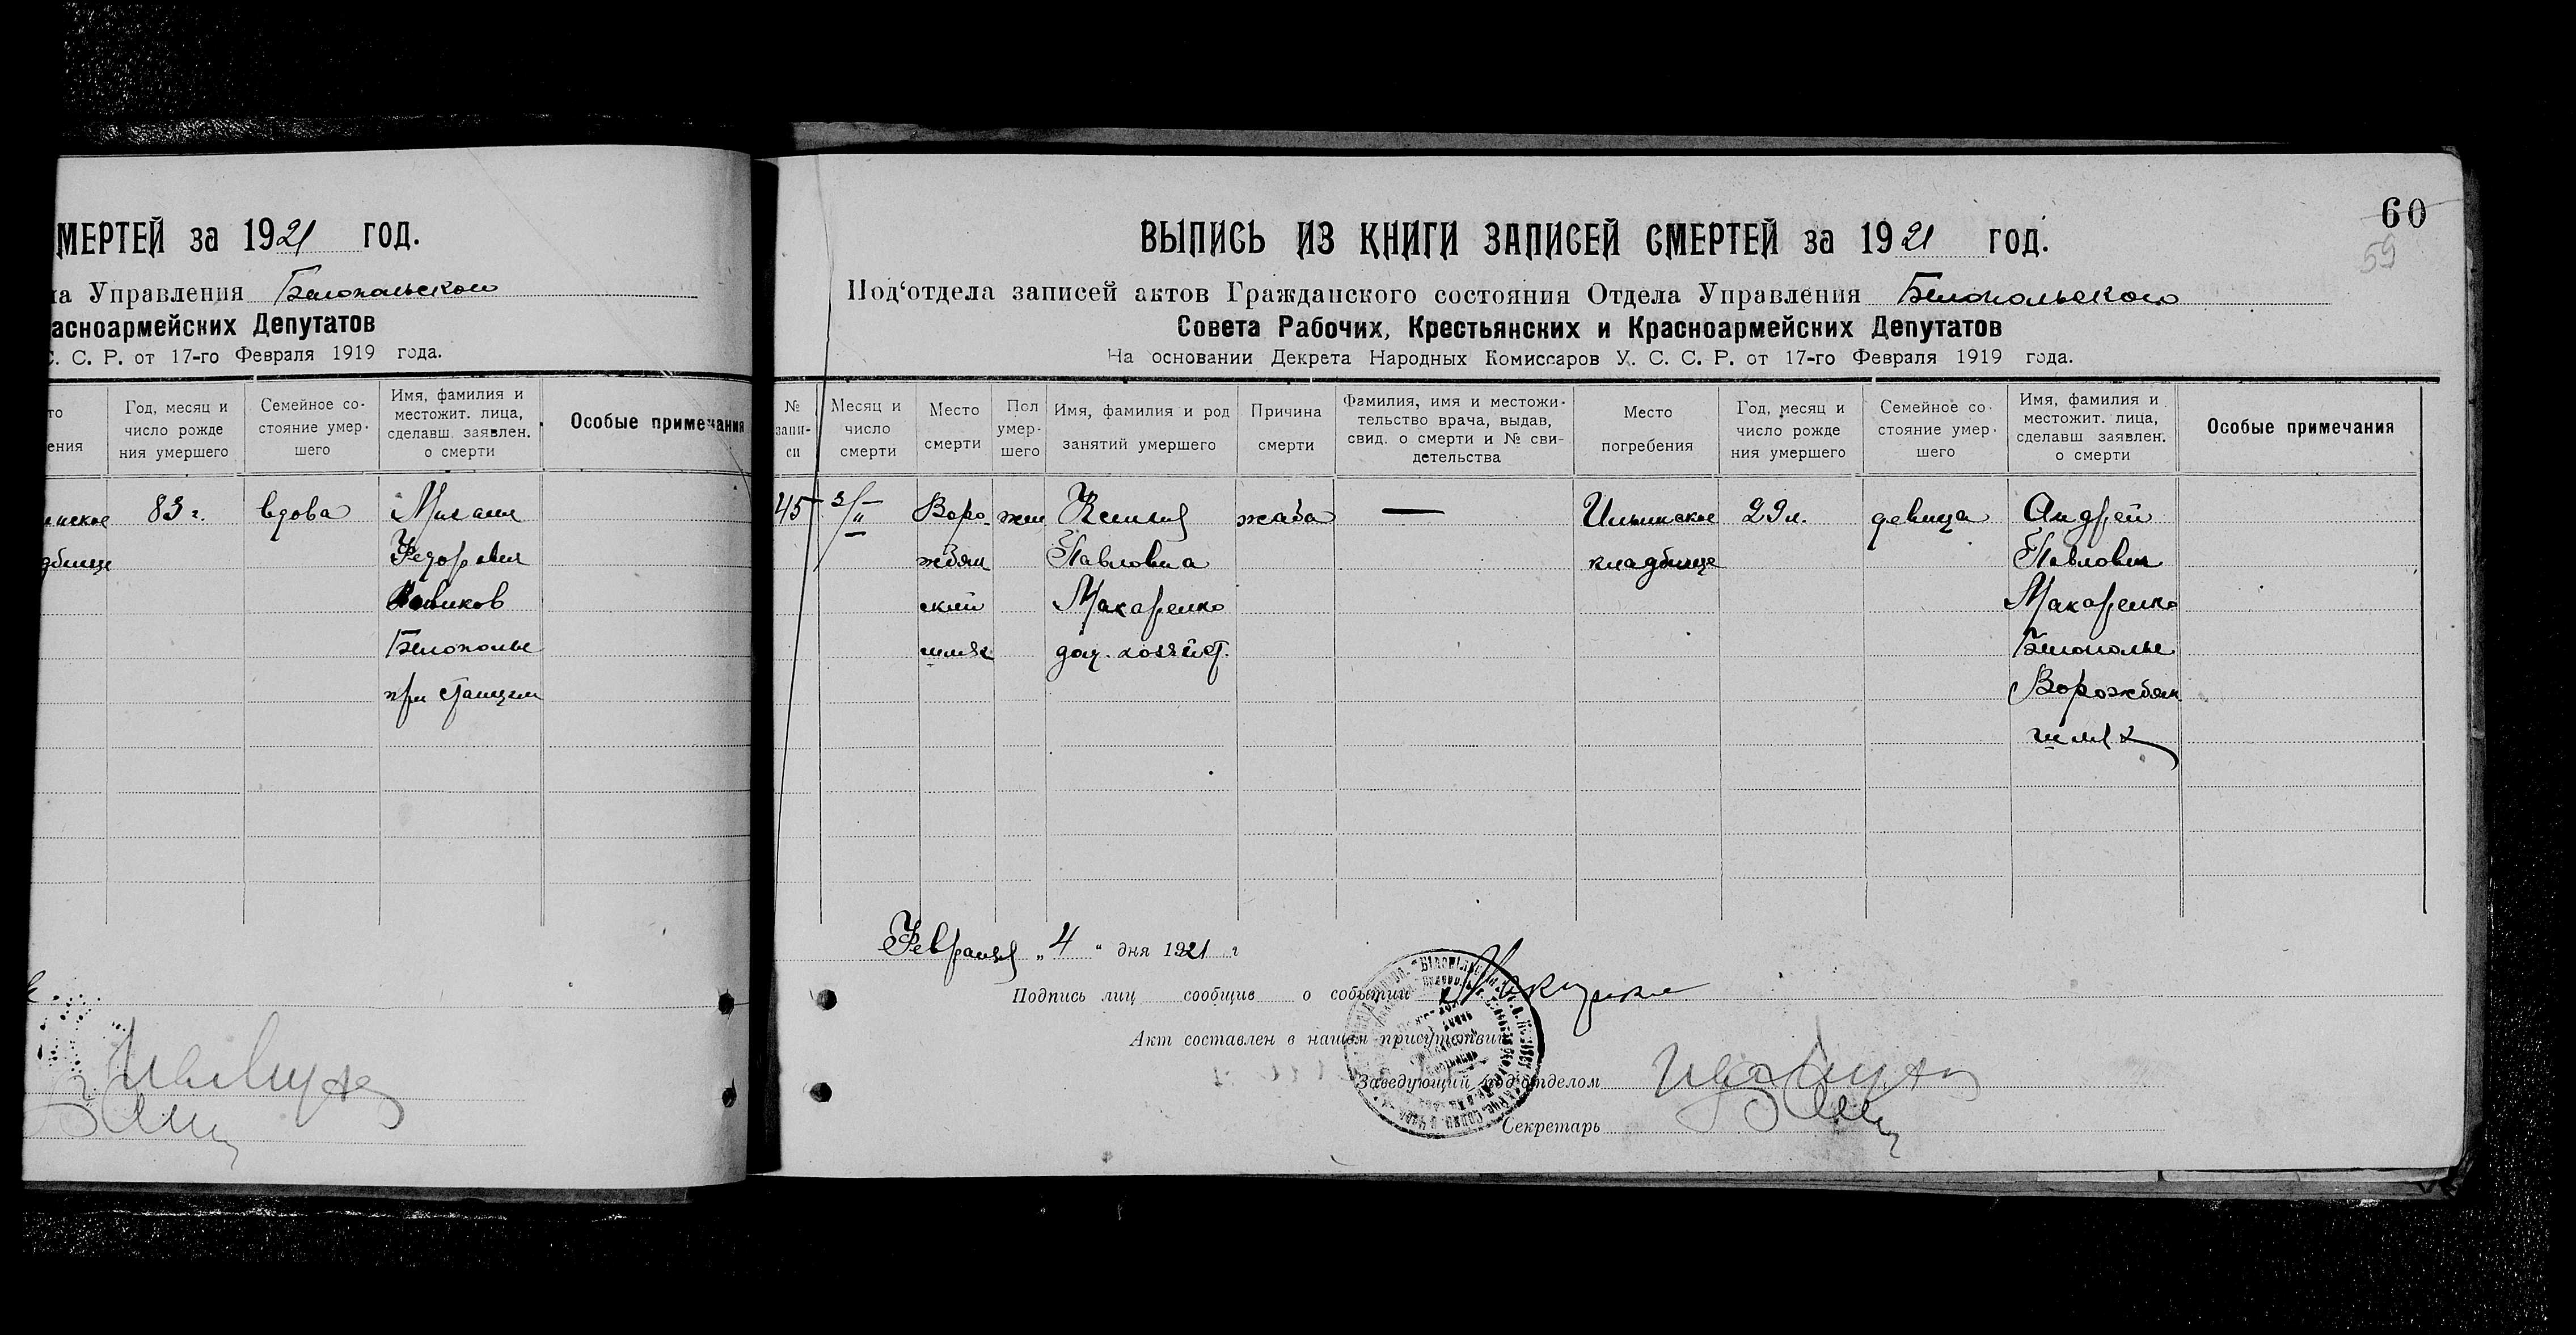 МЕРТЕЙ за 1921 год.
на Управления Белопольского
асноармейских Депутатов
С. С. Р. от 17-го Февраля 1919 года.
то
ения
Год, месяц и
число рожде
ния умершего
Семейное со-
стояние умер-
шего
Имя, фамилия и
местожит. лица,
сделавш. заявлен.
о смерти
Особые примечания
инское
дбище
83 г.
вдова
Федорович
Белополье
при станции
60
59
ВЫПИСЬ ИЗ КНИГИ ЗАПИСЕЙ СМЕРТЕЙ за 1921 год.
Под‘отдела записей актов Гражданского состояния Отдела Управления Белопольского
Совета Рабочих, Крестьянских и Красноармейских Депутатов
На основании Декрета Народных Комиссаров У. С. С. Р. от 17-го Февраля 1919 года.
№
запи-
си
Месяц и
число
смерти
Место
смерти
Пол
умер-
шего
Имя, фамилия и род
занятий умершего
Причина
смерти
Фамилия, имя и местожи-
тельство врача, выдав,
свид. о смерти и № сви-
детельства
Место
погребения
Год, месяц и
число рожде
ния умершего
Семейное со-
стояние умер-
шего
Имя, фамилия и
местожит. лица,
сделавш заявлен.
о смерти
Особые примечания
45
3/II
Воро-
жбян
ский
шлях
жен
Ксения
Павловна
Макаренко
дом. хозяйст.
жаба
—
Ильинское
кладбище
29 л.
девица
Андрей
Павлович
Макаренко
Белополье
Ворожбян
шлях
Февраля „ 4 “ дня 1921 г
Подпись лиц сообщив о событии
Акт составлен в нашем присутствии
Заведующий под‘отделом
Секретарь